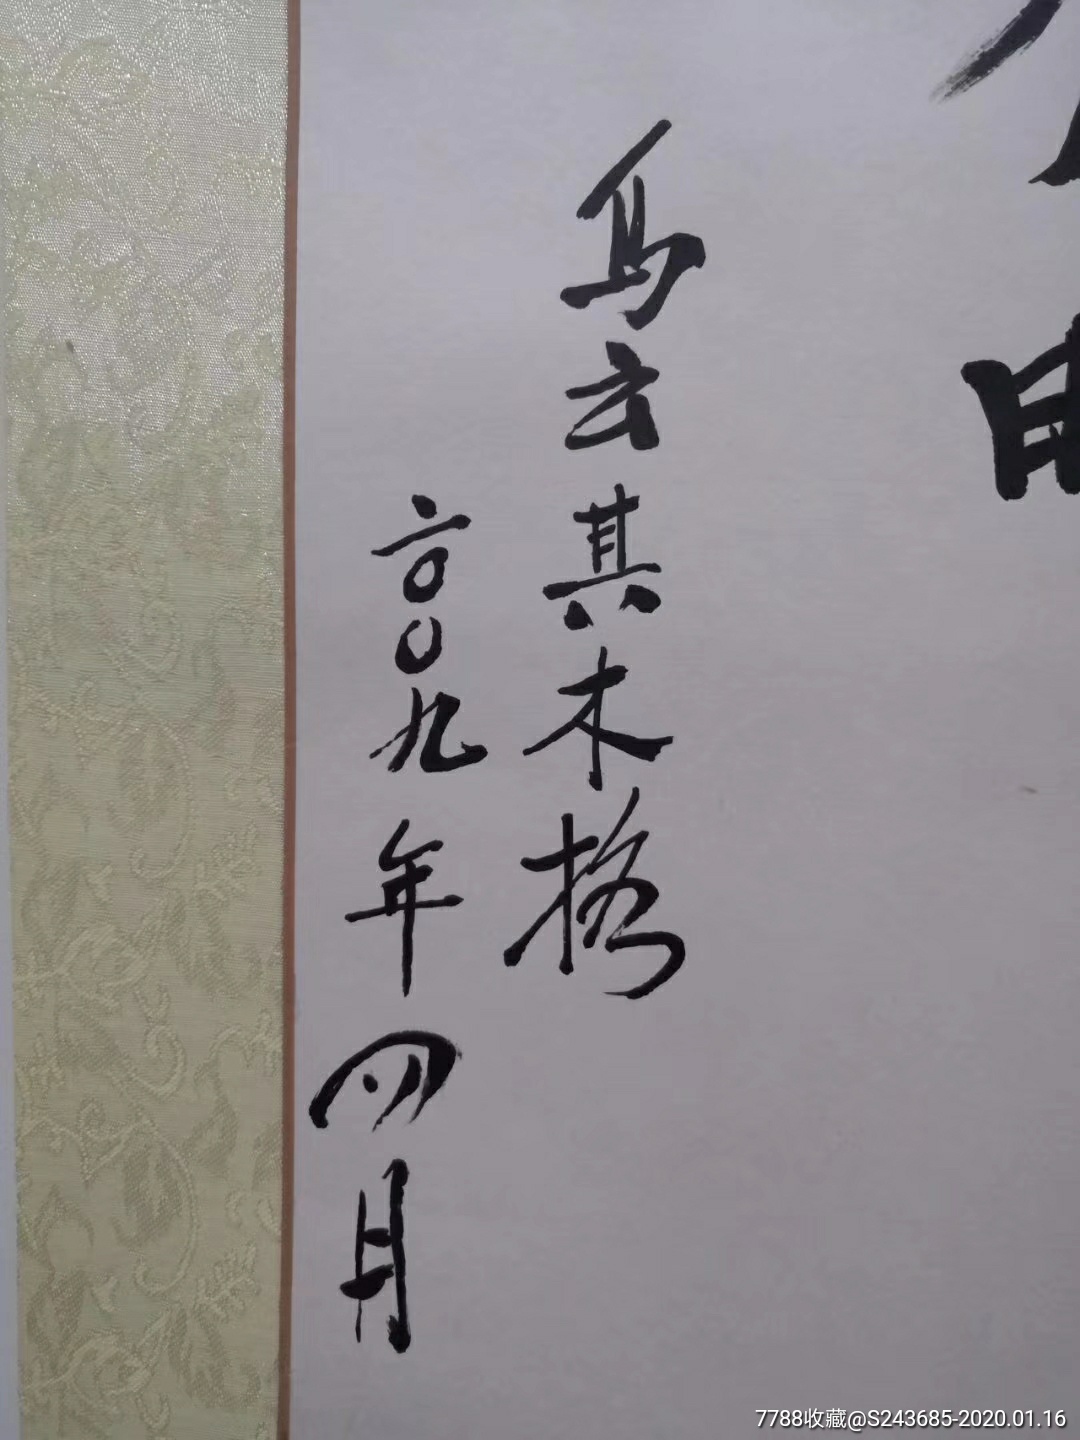 乌云其木格
二〇〇九年四月
7788收藏@S243685-2020.01.16